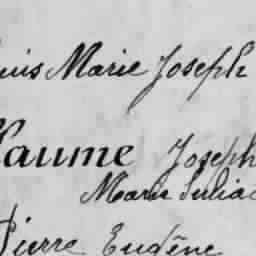 uis Marie Joseph
laume Joseph
Marie Suliac
Pierre Eugène